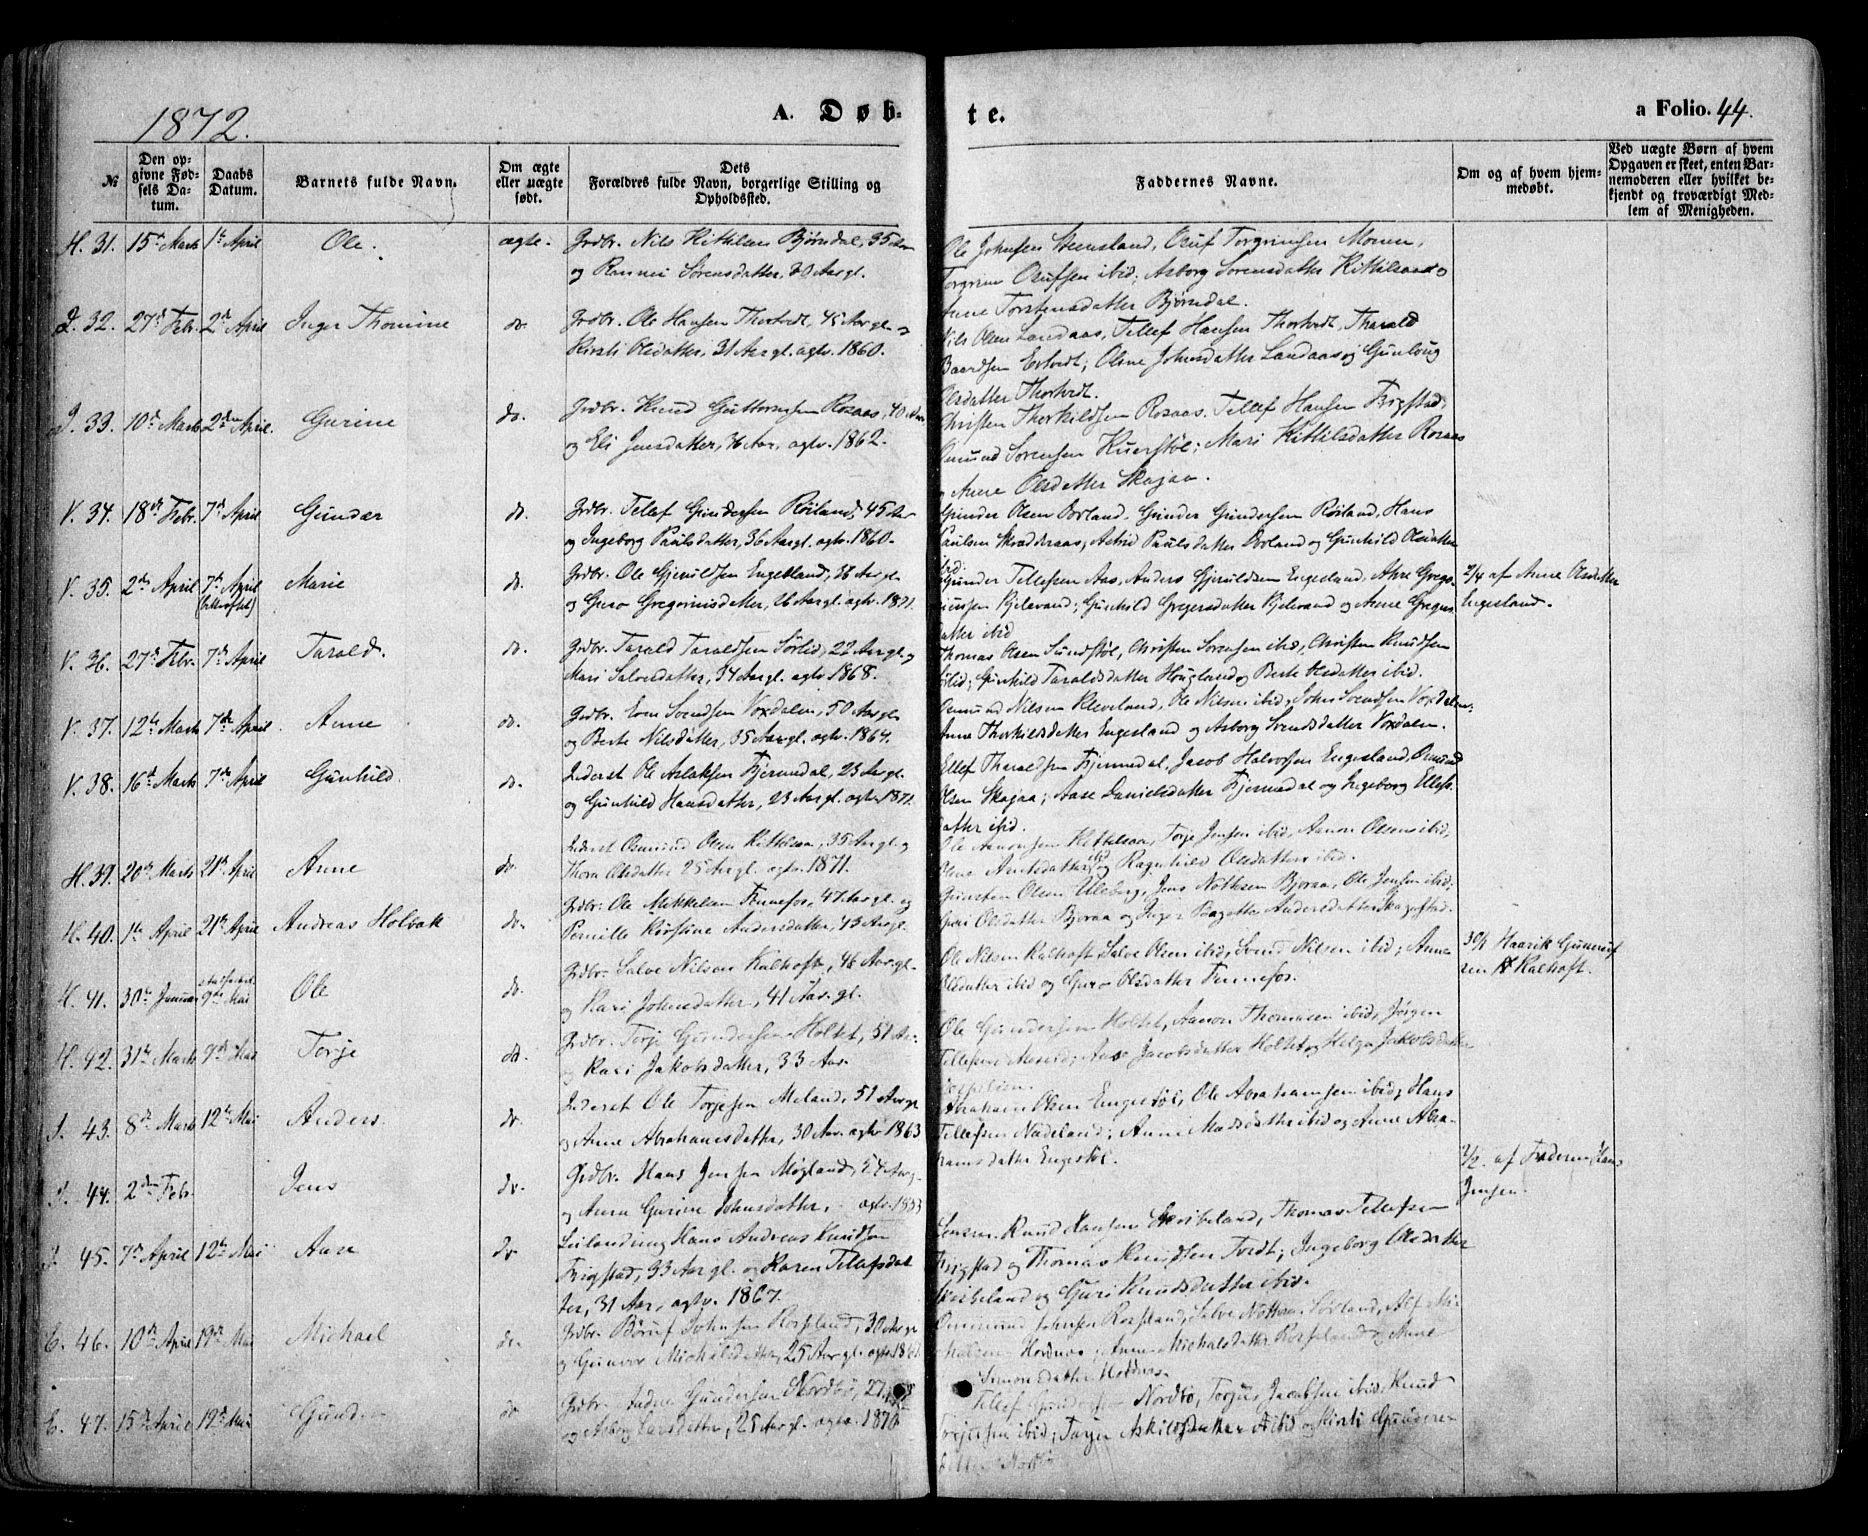 1872.
A. Døb-
te.
a Folio. 44.
№
Den op-
givne Fød-
sels Da-
tum.
Daabs
Datum.
Barnets fulde Navn.
Om ægte
eller uægte
født.
Dets
Forældres fulde Navn, borgerlige Stilling og
Opholdssted.
Faddernes Navne.
Om og af hvem hjem-
medøbt.
Ved uægte Børn af hvem
Opgaven er skeet, enten Bar-
nemoderen eller hvilket be-
kjendt og troværdigt Med-
lem af Menigheden.
H. 31. 15de Marts 1ste April Ole. ægte. Grdbr. Nils Kittilsen Bjørndal, 35 Aar
og Rannei Sørensdatter, 20 Aar gl.
Ole Johnsen Steensland, Osuf Torgrimsen Moen,
Torgrim Osufsen ibid; Asborg Sorensdatter
Anne Torstensdatter Bjørndal.
32. 27de Febr. 2den April Inger Thomine do. Grdbr. Ole Hansen Thortvedt, 45 Aar gl. og
Kirsti Olsdatter, 31 Aar gl. agtv. 1860.
Nils Olsen Landaas, Tellef Hansen Thortvedt, Tharald
Baardsen Ertvedt; Olene Johnsdatter Landaas og Gunloug
Olsdatter Thortvedt.
33. 10de Marts 2den April. Gurine do. Grdbr. Knud Guttormsen Rosaas, 40 Aar
og Eli Jensdatter, 36 Aar, agtv. 1862.
Christen Thorkildsen Rosaas, Tellef Hansen Trygstad,
Osmund Sorensen Kuerstøl; Mari Kittilsdatter Rosaas
og Anne Olsdatter Skajaa.
V. 34. 18de Febr. 7de April Gunder do. Grdbr. Tellef Gundersen Røiland, 45 Aar
og Ingeborg Paulsdatter, 36 Aar gl. agtv. 1860.
Gunder Olsen Dorland, Gunder Gundersen Røiland, Hans
Paulsen Skræderaas, Astrid Paulsdatter Dorland og Gunhild Olsdatter
ibid.
V. 35. 2den April 7de April Marie do. Grdbr. Ole Gjeruldsen Engesland, 26 Aar gl.
og Guro Gregoriusdatter, 26 Aar gl. agtv. 1871.
Gunder Tellefsen Aas, Anders Gjeruldsen Engesland,
Kjelevand; Gunhild Gregersdatter Kjelevand og Anne Gregers-
datter ibid
2/4 af Anne Olsdatter
Engesland.
V. 36. 27de Febr. 7de April Tarald. do. Grdbr. Tarald Taraldsen Sørlid, 22 Aar gl. og
Mari Salvesdatter, 34 Aar gl. agtv. 1868.
Thomas Olsen Sundstøl, Christen Sorensen ibid, Christen Knudsen
Sølid; Gunhild Taraldsdatter Hougland og Berte Olsdatter ibid.
V. 37. 12te Marts 7de April. Anne do. Grdbr. Even Svendsen Voxdalen, 50 Aar gl.
og Berte Nilsdatter, 35 Aar gl. agtv. 1864.
Osmund Nilsen Kleveland, Ole Nilsen ibid, John Svendsen Voxdalen;
Anne Thorkildsdatter Engesland og Asborg Svendsdatter Voxdalen.
V. 38. 16de Marts 7de April Gunhild. do. Inderst Ole Aslaksen Fjermedal, 23 Aar gl.
og Gunhild Hansdatter, 23 Aar gl. agtv. 1871.
Ellef Tharaldsen Fjermedal, Jacob Halvorsen Engesland, Osmund
Olsen Skajaa; Aase Danielsdatter Fjermedal og Ingeborg Ellefs-
datter ibid.
H. 39. 20de Marts 21de April Anne do. Inderst Osmund Olsen Kittilsaa, 35 Aar gl. og
Thora Olsdatter 25 Aar gl. agtv. 1871.
Ole Aanonsen Kittilsaa, Torje Jensen ibid, Aanon Olsen ibid,
og Ragnhild Olsdatter ibid.
H. 40. 1ste April 21de April Andreas Holbæk do. Grdbr. Ole Mikkelsen Tennefos, 47 Aar gl. og
Pernille Kirstine Andersdatter, 43 Aar gl.
Gunsten Olsen Uleberg, Jens Nottesen Bjoraa, Ole Jensen ibid;
Guri Olsdatter Bjoraa og Inger Andersdatter
H. 41. 30te Januar 9de Mai Ole do. Grdbr. Salve Nilsen Kalhoft, 46 Aar gl.
og Kari Johnsdatter, 41 Aar gl.
Ole Nilsen Kalhoft, Salve Olsen ibid, Svend Nilsen ibid; Anne
Olsdatter ibid og Guro Olsdatter Tennefos.
30/1 Haavik Gunnuf
sen Kalhoft.
H. 42. 31te Marts 9de Mai Torje do. Grdbr. Torje Gundersen Holtet, 51 Aar
og Kari Jakobsdatter, 33 Aar.
Ole Gundersen Holtet, Aanon Thomasen ibid, Jørgen
Tellefsen Moseid; Aase Jacobsdatter Holtet og Helga Jakobsdatter
43. 8de Marts 12te Mai Anders. do. Inderst Ole Torjesen Meland, 51 Aar gl
og Anne Abrahamsdatter, 30 Aar agtv 1863
Abraham Olsen Engestøl, Ole Abrahamsen ibid, Hans
Tellefsen Nadeland; Anne Madsdatter ibid og Anne Abra-
hamsdatter Engestøl.
44. 2den Febr. Jens do. Grdbr. Hans Jensen Møgland, 54 Aar gl.
og Anna Gurine Johnsdatter, agtv. 1853
2/2. af Faderen Hans
Jensen.
45. 7de April 12te Mai Aase do Leilænding Hans Andreas Knudsen
Trigstad, 33 Aar gl. og Karen Tellefsdat
ter, 31 Aar, agtv. 1867.
Knud Hansen Skribeland, Thomas Tellefsen
Trigstad og Thomas Knudsen Tvedt; Ingeborg Olsdatter
Skribeland og Guri Knudsdatter ibid.
E. 46. 10de April 19de Mai Michael do. Grdbr. Børuf Johnsen Rosseland, 30 Aar gl
og Gunvor Michalsdatter, 25 Aar gl. agtv.
Osmund Johnsen Rosseland, Salve Nottesen Sorland,
Hordnes; Anne Michalsdatter Rosseland og Anne
Simonsdatter Hordnes.
E. 47. 15de April 19de Mai Gunder do Grdbr. Gundersen Nordbø, 27
og Asborg Larsdatter, 25 Aar gl. agtv. 1870
Tellef Gundersen Nordbø, Torjus Jacobsen ibid, Knud
Torjesen ibid; Torjer Askildsdatter ibid og Kirsti Gunders-
datter